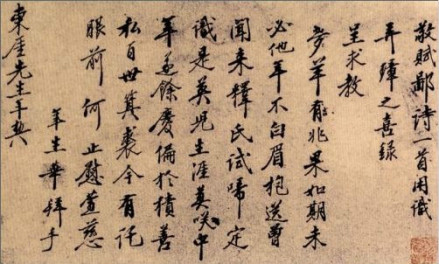 敬賦鄙詩一首用識
弄璋之喜録
呈求教
夢羊有兆果如期未
必他年不白眉抱送曾
聞來釋氏試啼定
識是英兒生涯莫咲中
年餘慶偏於積善
私百世箕裘今有託
眼前何止慰萱慈
年生華拜手
東崖先生年契